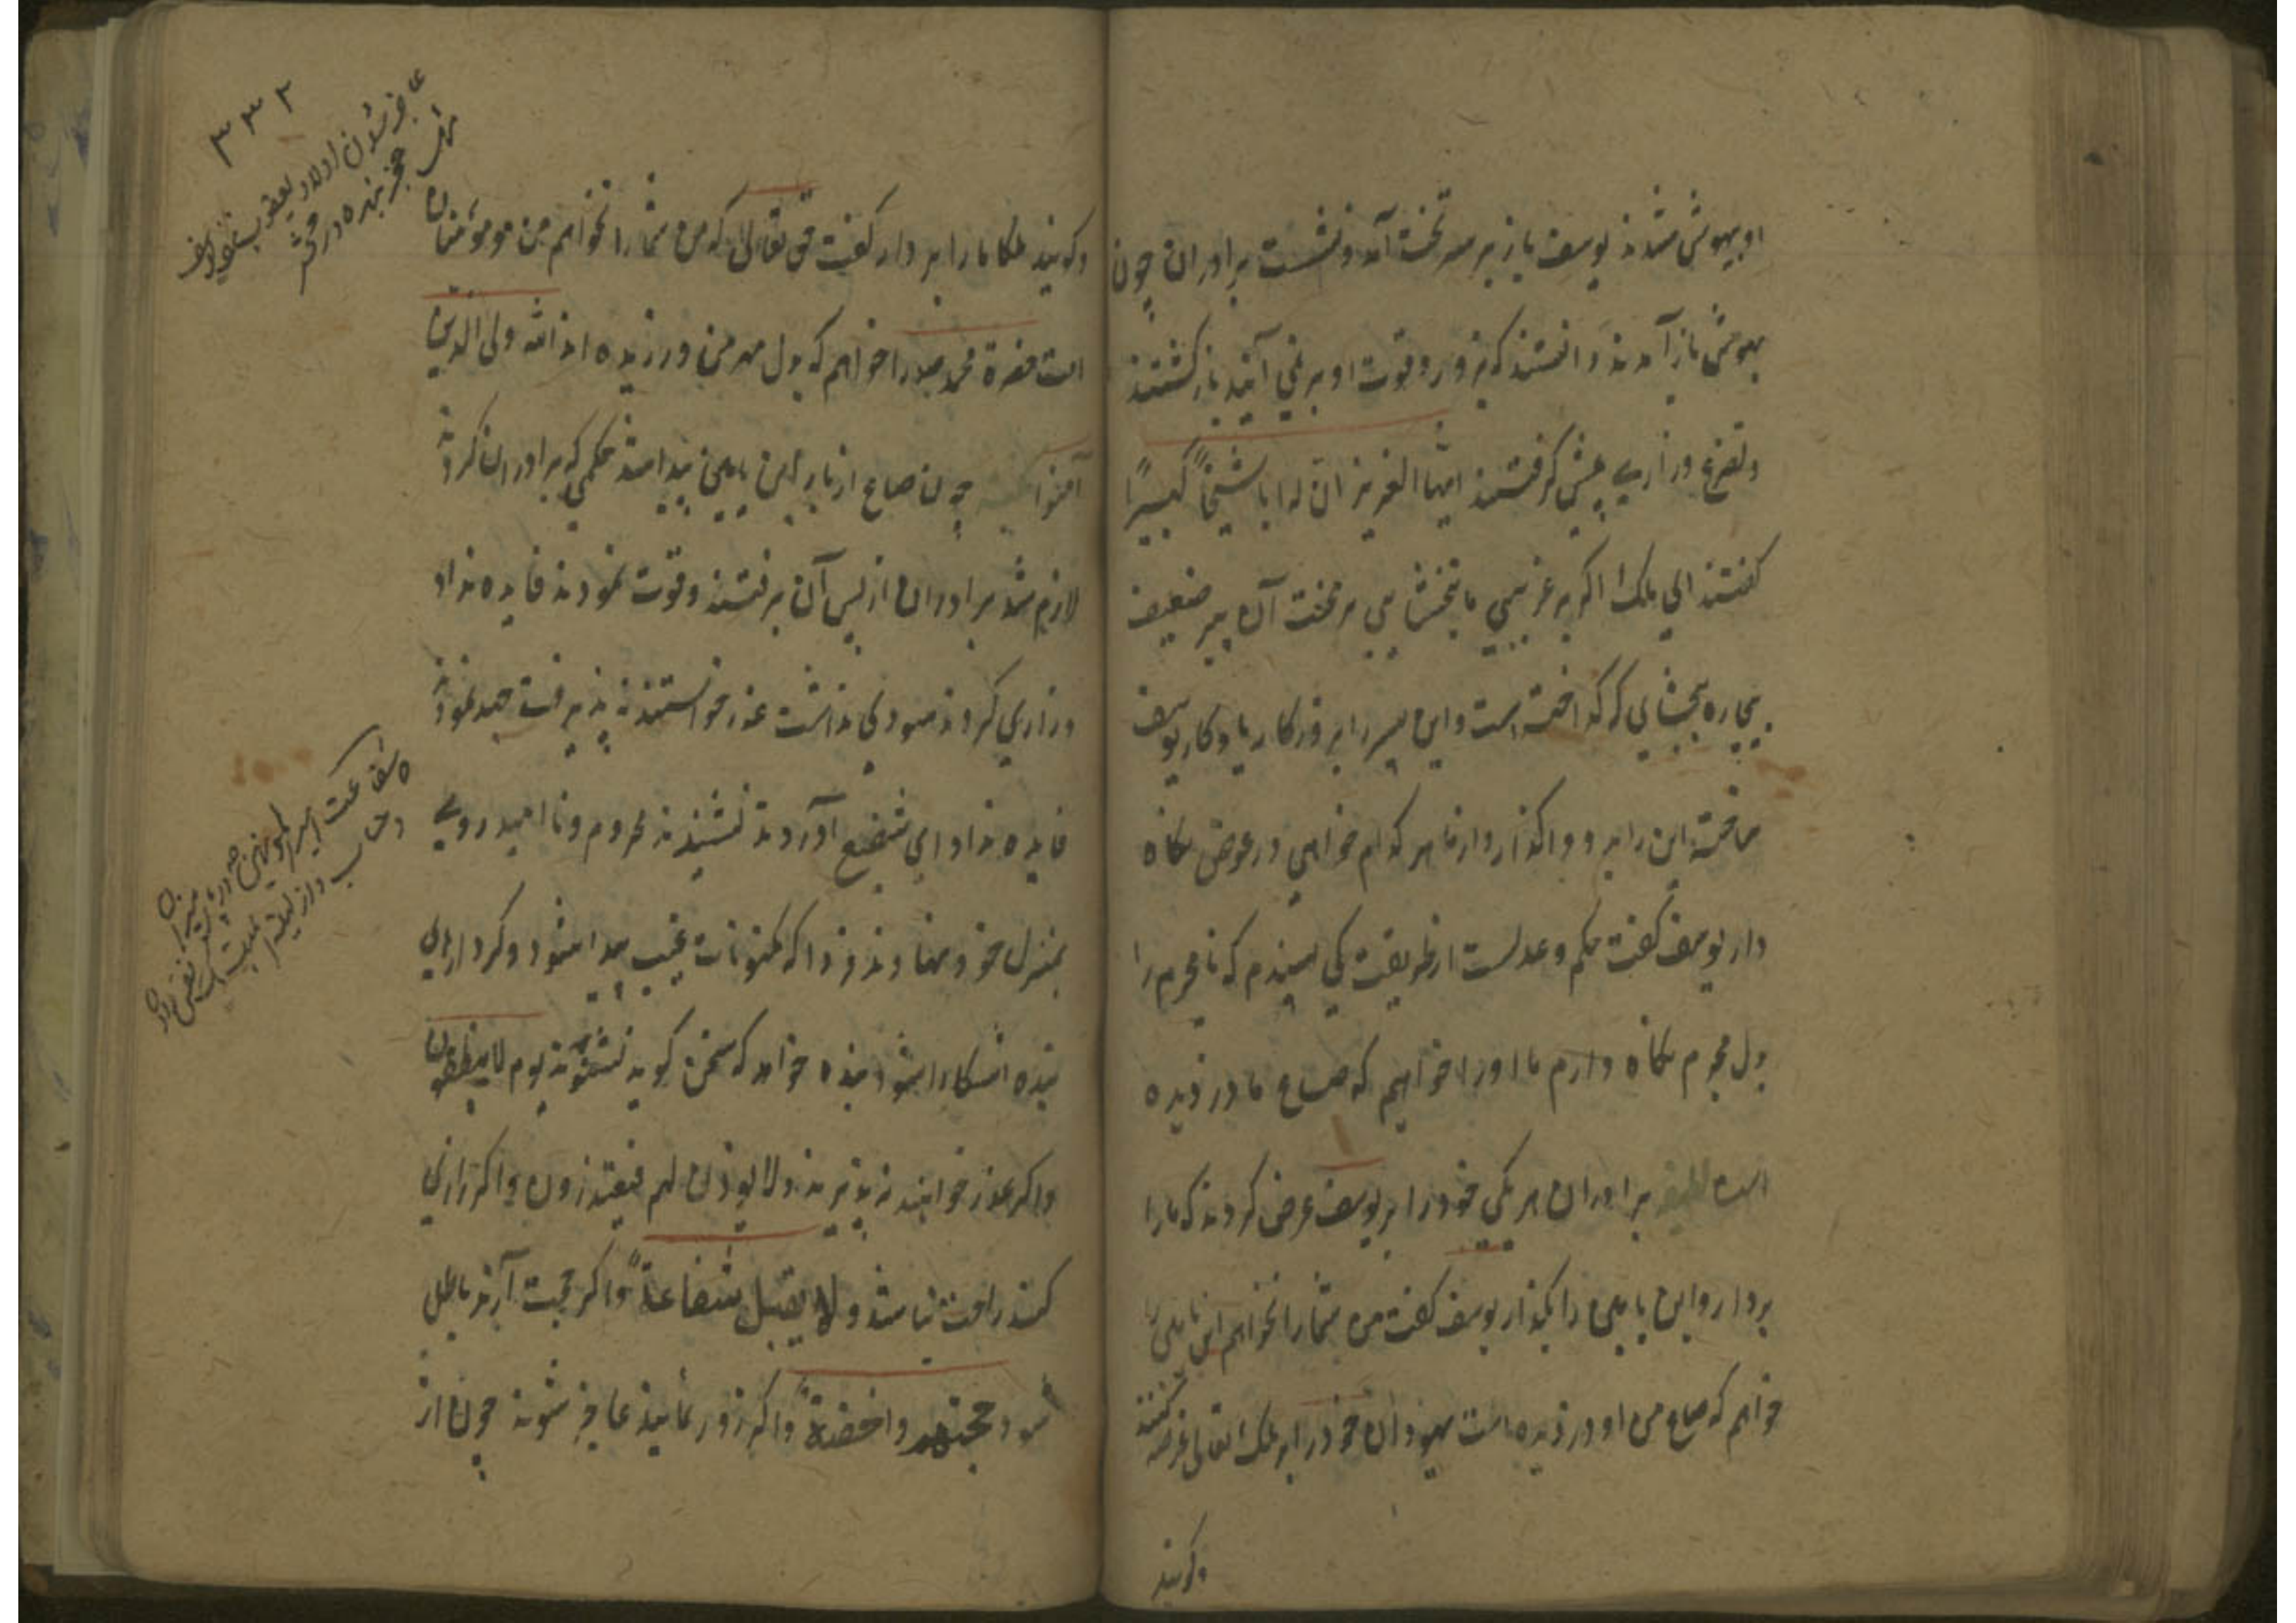 او بیهوش شدند یوسف باز بر سر تخت آمد و نشست برادران چون
بهوش باز آمدند دانستند که بزور و قوت او بر نمی آیند باز کشتند
و تضرع و زاری پیش کرفتند ایها العزیز ان له ابا شیخاً کبیراً
کفتند ای ملک اکر بر غریبی ما نبخشایی بر محنت آن پیر ضعیف
بیچاره ببخشایی که کداخته است و این پسر را بروزکار یادکار یوسف
ساخته این را برو واکذار و از ما هر کدام خواهی در عوض نکاه
دار یوسف کفت حکم و عدلست از طریقت کی پسندم که نامجرم را
بدل مجرم نکاه دارم ما او را خواهیم که صاع ما دزدیده
است برادران هر یکی خود را بر یوسف عرض کردند که ما را
بردار و ابن یامین را بکذار یوسف کفت من شما را نخواهم ابن یامین را
خواهم که صاع من او دزدیده است یهودان خود را بر ملک تعالی عرضه کنند
و کویند
۳۳۲
عاجز شدن اولاد یعقوب نزد یوسف
عجز بنده در محشر
و کویند ملکا ما را بردار کفت حق تعالی که من شما را نخواهم من مومنان
امت حضرة محمد را خواهم که بدل مهر من ورزیده اند الله ولی الذین
آمنوا چون صاع از بار ابن یامین پیدا شد حکمی که برادران کردند
لازم شد برادران از پس آن برفتند و قوت نمودند فایده نداد
و زاری کردند سودی نداشت عذر خواستند نپذیرفت جهد نمودند
فایده نداد شفیع آوردند نشنیدند محروم و ناامید روی
بمنزل خود نهادند فردا که مکنونات غیب پیدا شود و کردارهای
بنده آشکارا شود بنده خواهد که سخن کوید نشنوند یوم لا ینطقون
و اکر عذر خواهند نپذیرند و لا یوذن لهم فیعتذرون و اکر زاری
کنند راحت نباشد و لا یقبل شفاعة و اکر حجت آرند باطل
شود حجتهم داحضة و اکر زور نمایند عاجز شوند چون از
شفاعت امیر المومنین در میزان